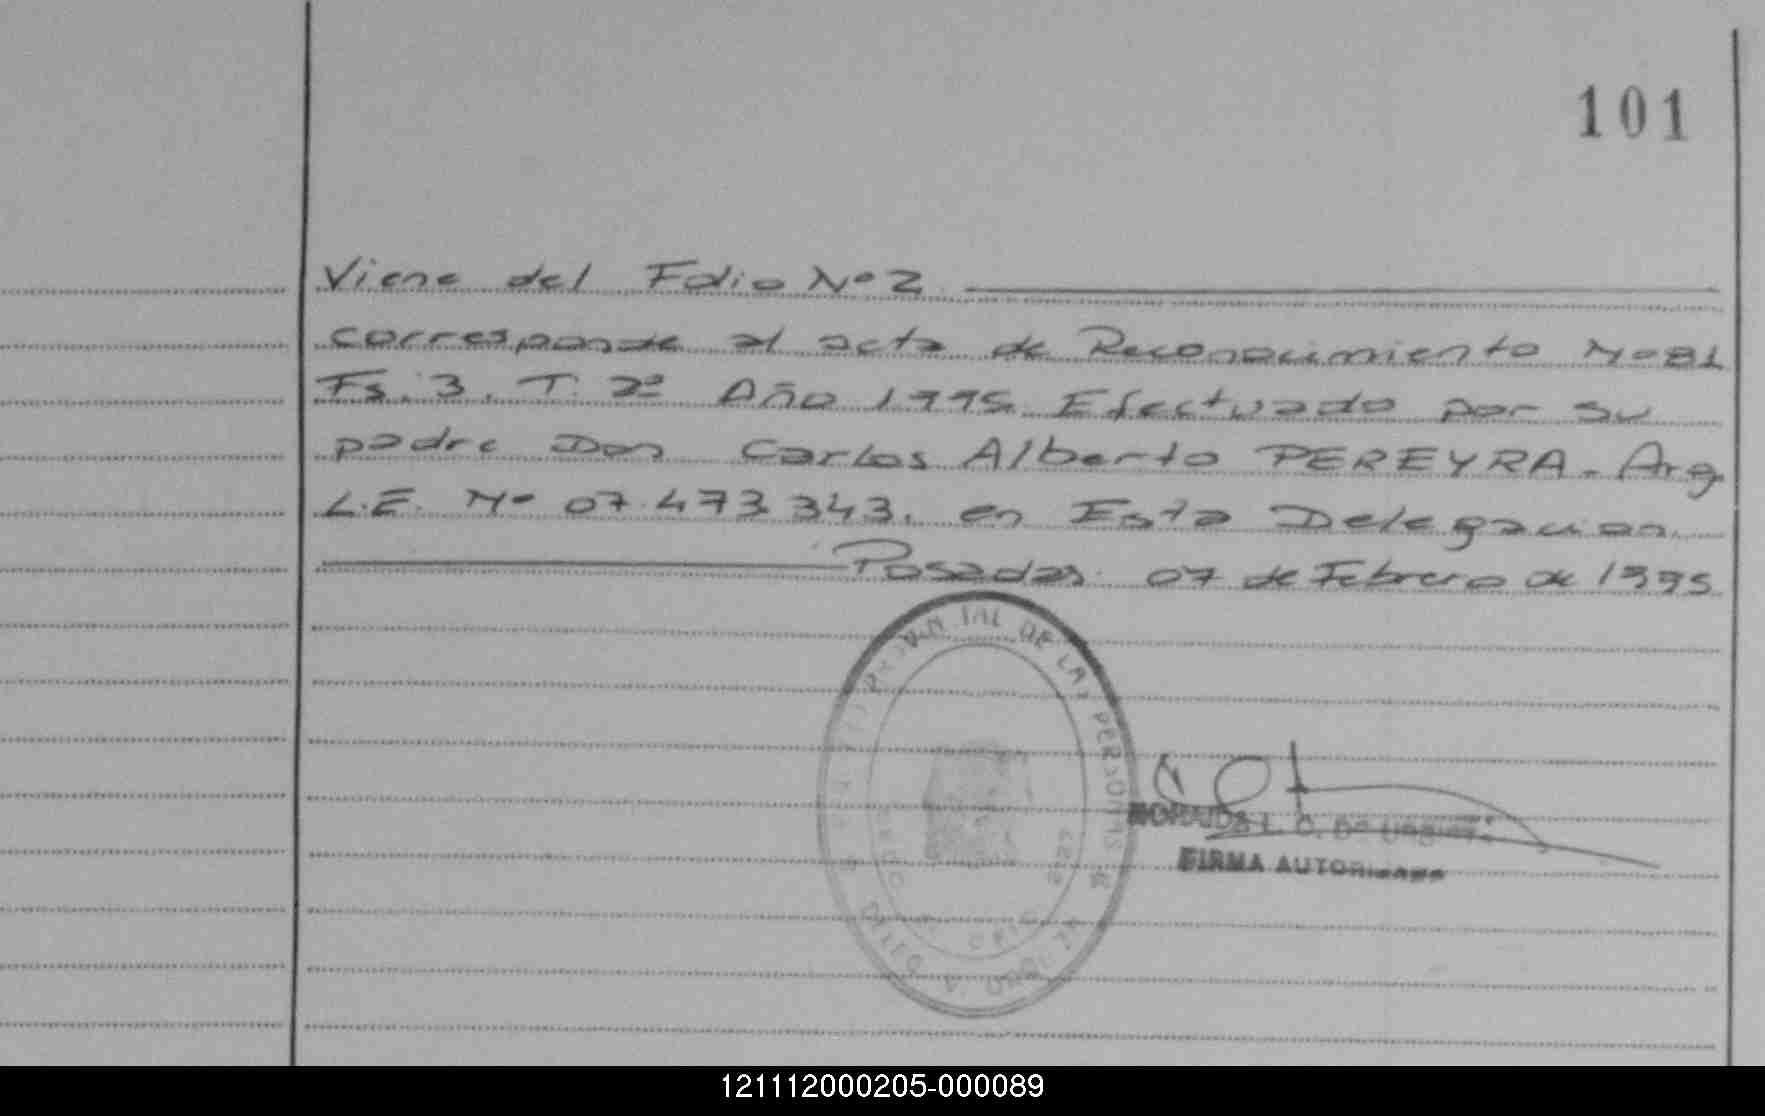 101
Viene del Folio Nº 2
corresponde al acta de Reconocimiento Nº 81
Fs. 3. T. 2º Año 1995 Efectuado por su
padre Don Carlos Alberto PEREYRA. Arg
L.E. Nº 07.473.343. en Esta Delegacion.
Posadas 07 de Febrero de 1995
PROVINCIAL DE LAS PERSONAS
FIRMA AUTORIZADA
121112000205-000089